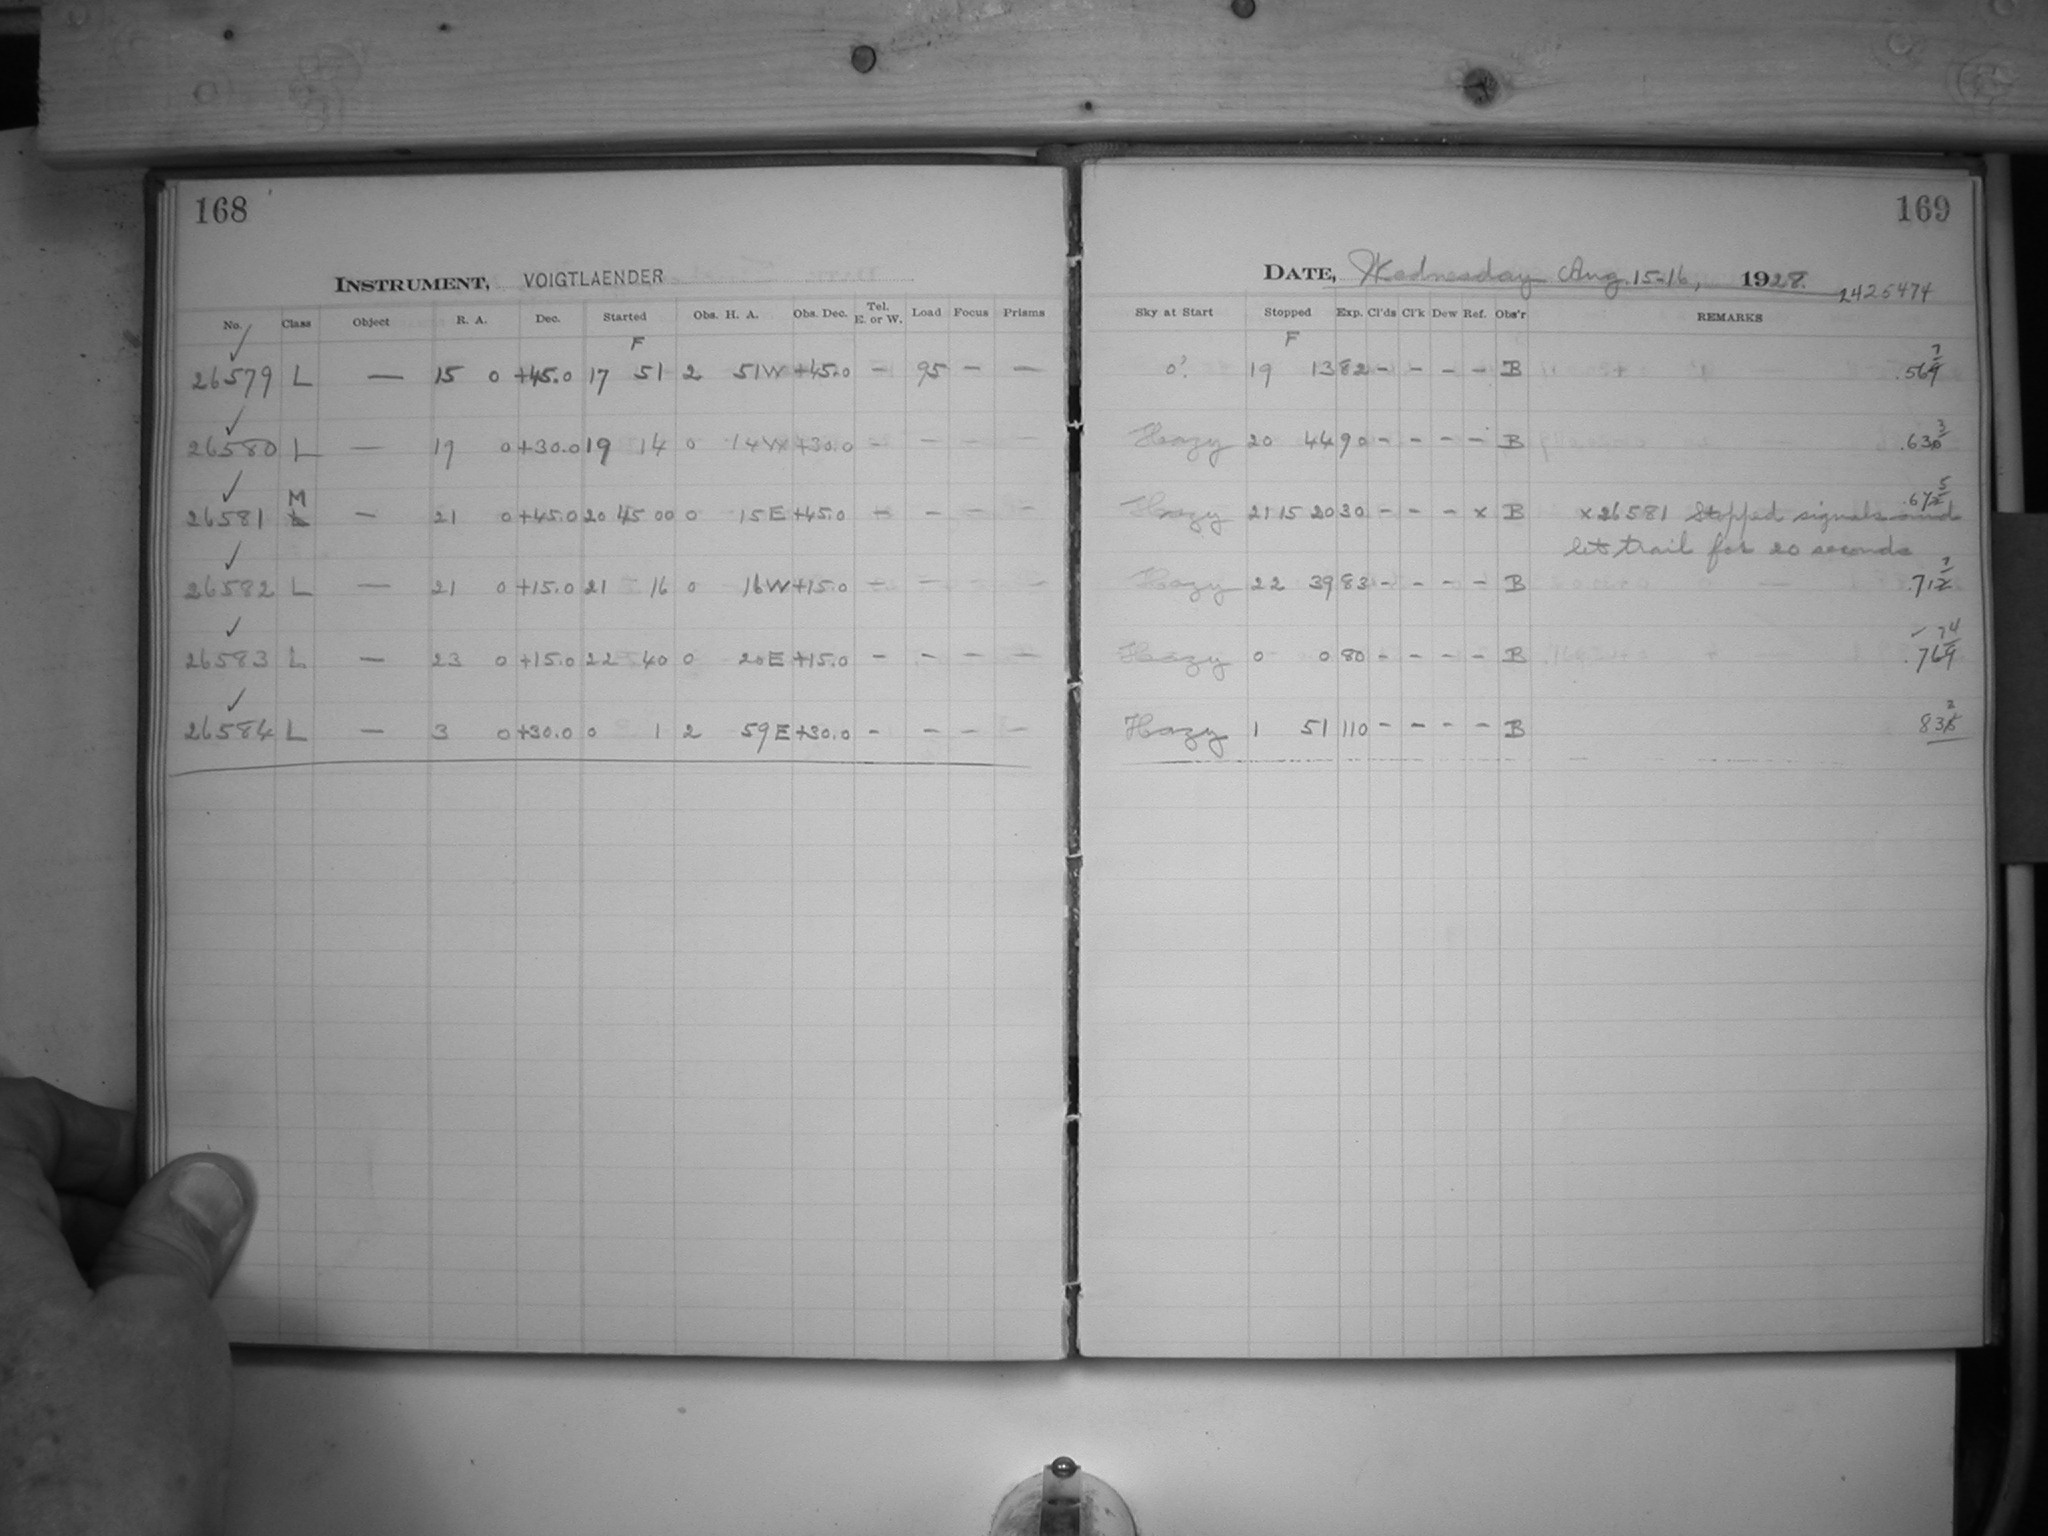 168
INSTRUMENT, VOIGTLAENDER
No. Class Object R. A. Dec. Started Obs. H. A. Obs. Dec. Tel. E. or W. Load Focus Prisms
F
26579 L — 15 0 +45.0 17 51 2 51W +45.0 - 95 - -
26580 L — 19 0 +30.0 19 14 0 14W +30.0 - - - -
M
26581 L — 21 0 +45.0 20 45 00 0 15E +45.0 - - - -
26582 L — 21 0 +15.0 21 16 0 16W +15.0 - - - -
26583 L — 23 0 +15.0 22 40 0 20E +15.0 - - - -
26584 L — 3 0 +30.0 0 1 2 59E +30.0 - - - -
169
DATE, Wednesday Aug. 15-16, 1928. 2425474
Sky at Start Stopped Exp. Cl'ds Cl'k Dew Ref. Obs'r REMARKS
F
0'. 19 13 82 - - - - B .569 7
Hazy 20 44 90 - - - - B .630 3
Hazy 21 15 20 30 - - - x B x 26581 Stopped signals and .672 5
let trail for 20 seconds
Hazy 22 39 83 - - - - B .712 7
Hazy 0 0 80 - - - - B .769 74
Hazy 1 51 110 - - - - B 835 2